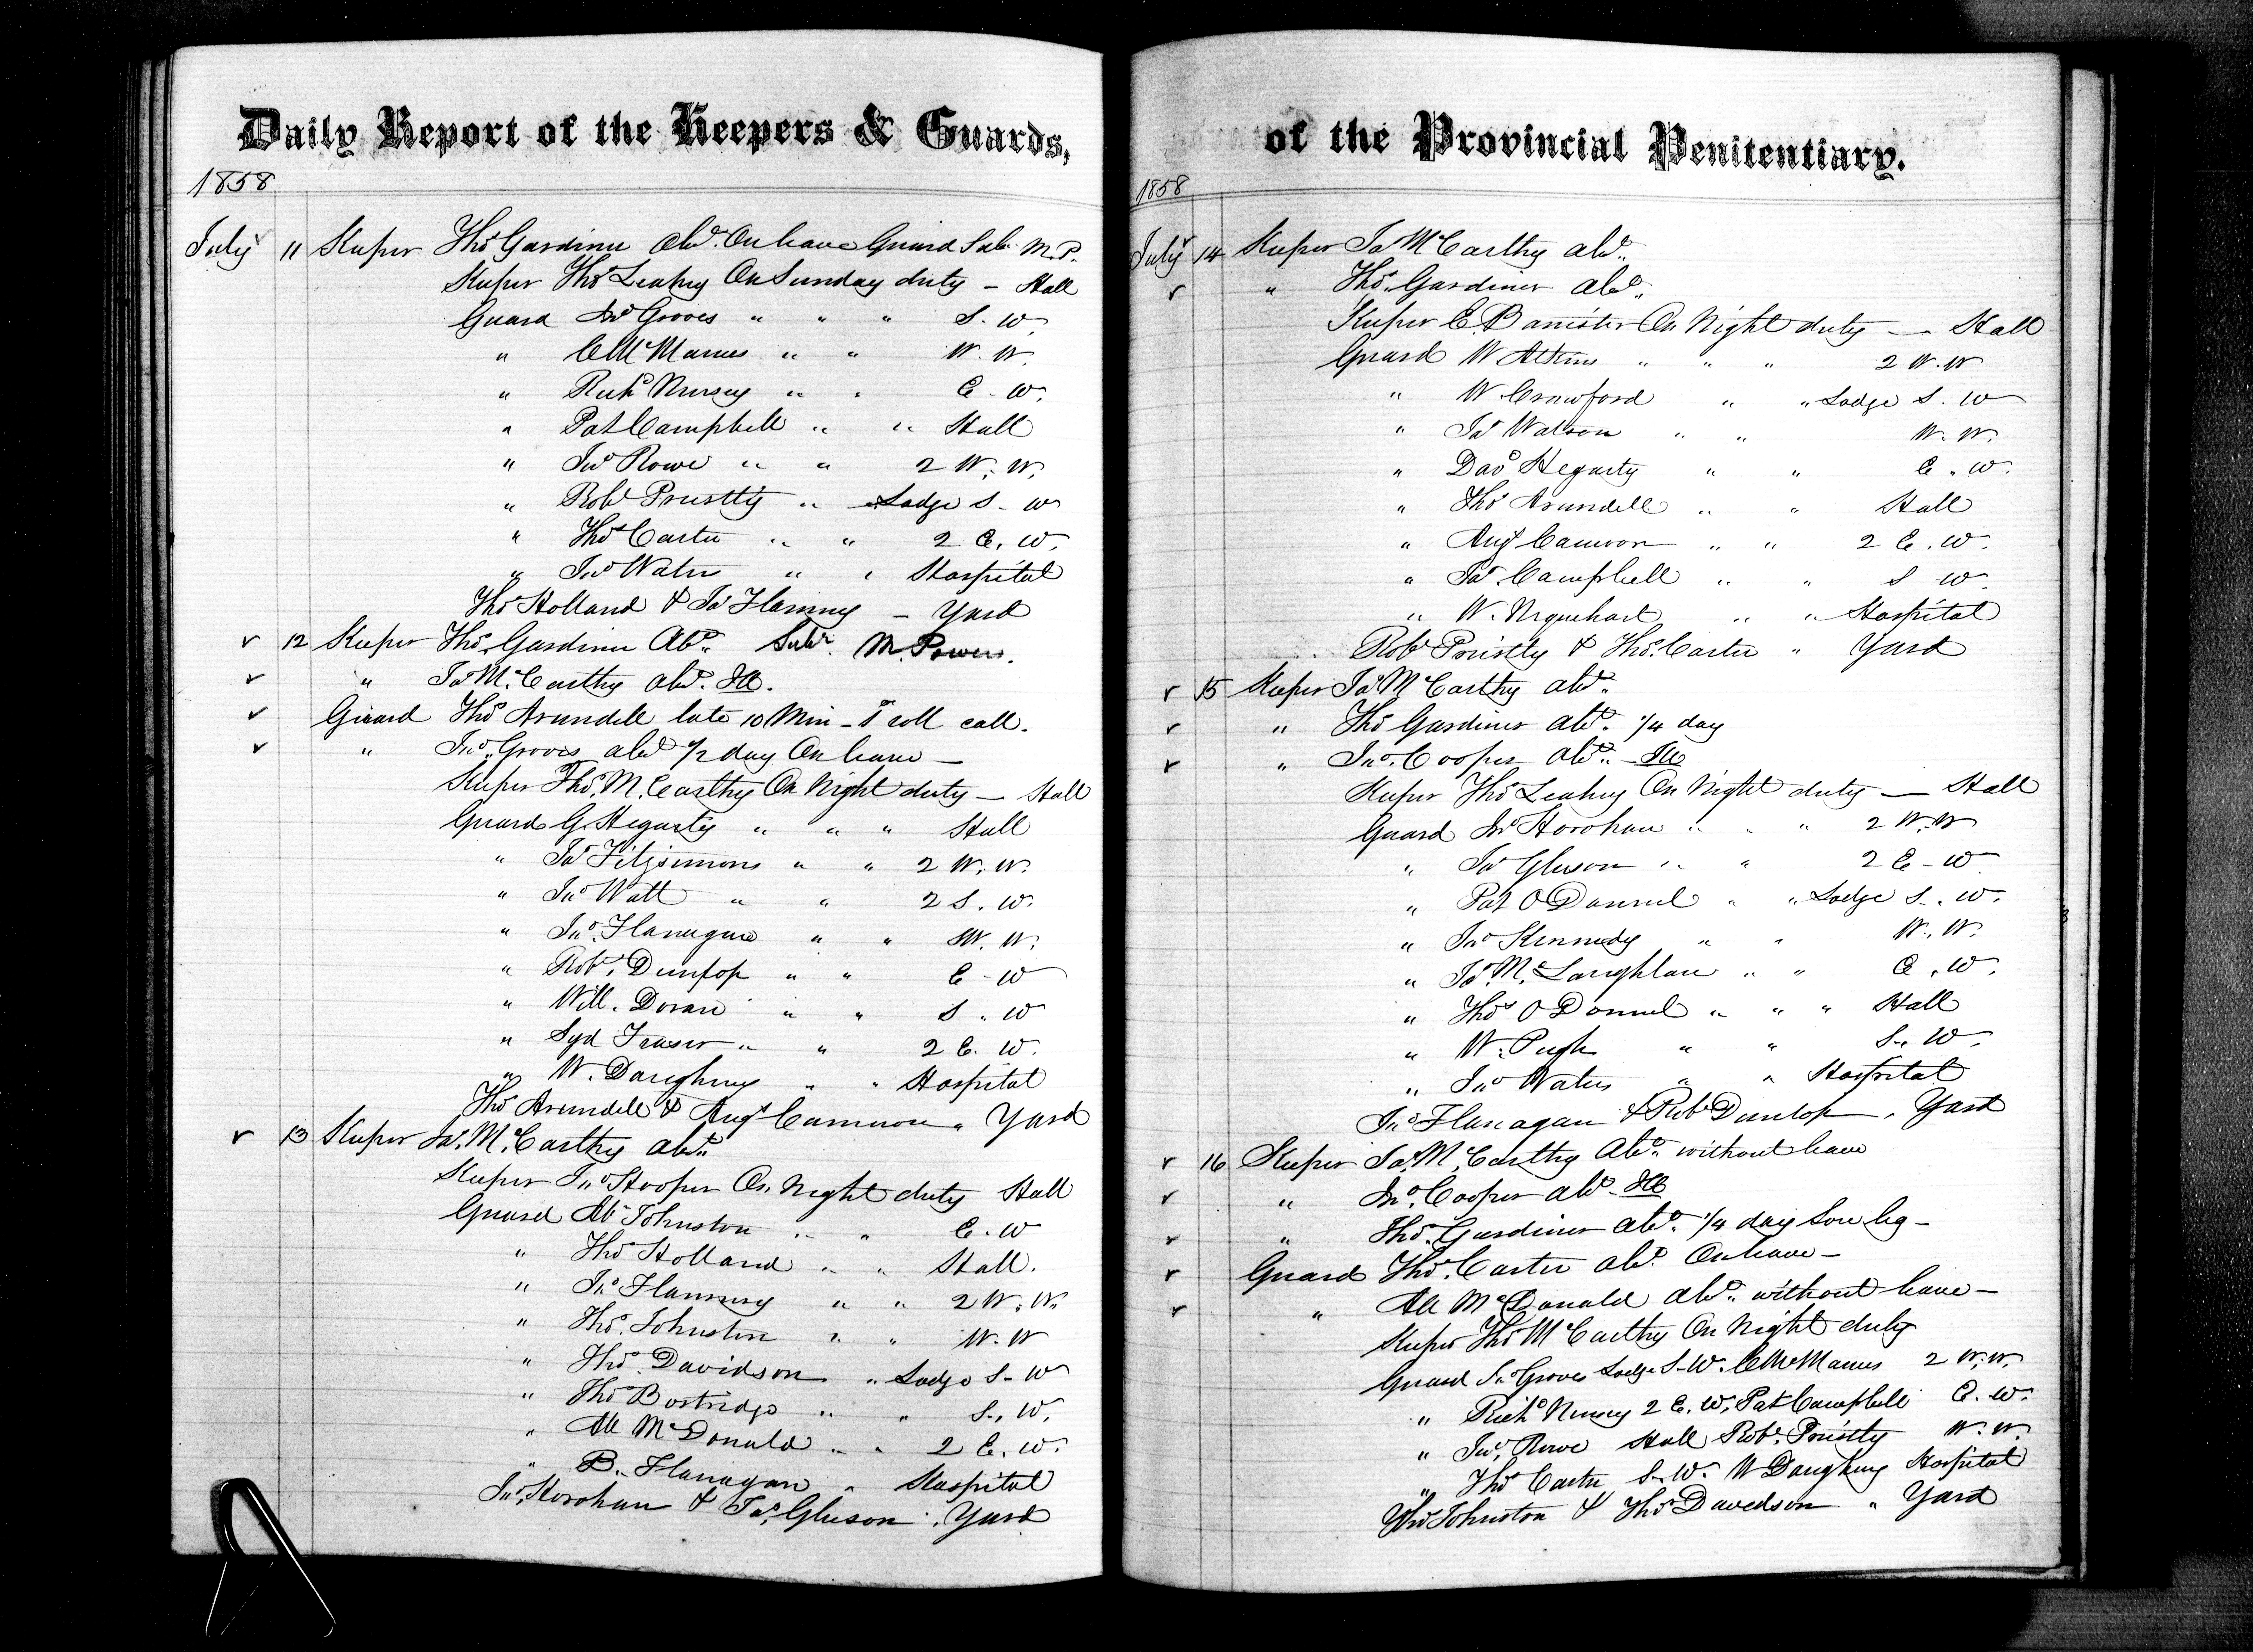 Daily Report of the Keepers & Guards,
1858
July 11 Keeper Thos Gardiner abst. On leave Guard Sub. M. P.
Keeper Thos Leahey On Sunday duty — Hall
Guard Jno Groves " " " S. W.
" C McManus " " W. W.
" Richd Nursey " " E. W.
" Pat Campbell " " Hall
" Jno Rowe " " 2 W. W.
" Robt Priestly " " Lodge S. W
" Thos Carter " " 2 E. W.
" Jno Waters " " Hospital
Thos Holland & Jas Flannery — Yard
12 Keeper Thos Gardiner Abst. Sub. M. Power.
" Jas McCarthy abst. Ill.
Guard Thos Arundell late 10 Min — roll call.
" Jno. Groves abst 1/2 day On leave —
Keeper Thos. McCarthy On Night duty — Hall
Guard G. Hegarty " " " Hall
" Jas Fitzsimons " " 2 W. W.
" Jno Watt " " 2 S. W.
" Jno. Flanagan " " W. W.
" Robt. Dunlop " " E. W
" Will. Doran " " S. W
" Syd Fraser " " 2 E. W.
" W. Daughney " " Hospital
Thos Arundell & Angs Cameron " Yard
13 Keeper Jas. McCarthy abst.
Keeper Jno Hooper On Night duty Hall
Guard Ab Johnston " " E. W
" Thos Holland " " Hall.
" Jas Flannery " " 2 W. W.
" Thos. Johnston " " W. W
" Thos. Davidson " Lodge S. W
" Thos Bostridge " " S. W.
" All McDonald " " 2 E. W.
" B. Flanagan " Hospital
Jno. Horohan & Jas. Gleeson " Yard
of the Provincial Penitentiary.
1858
July 14 Keeper Jas McCarthy abst.
" Thos. Gardiner abst.
Keeper E. Banister On Night duty — Hall
Guard W Atkins " " " 2 W. W
" W. Crawford " " Lodge S. W
" Jas Watson " " W. W.
" Davd Hegarty " " E. W.
" Thos Arundell " " Hall
" Angs Cameron " " 2 E. W.
" Jas. Campbell " " S W.
" W. Urquehart " " Hospital
Robt Priestly & Thos. Carter " Yard
15 Keeper Jas McCarthy abst.
" Thos Gardiner abst. 1/4 day
" Jno. Cooper abst. — Ill
Keeper Thos Leahey On Night duty — Hall
Guard Jno Horohan " " " 2 W. W
" Jas Gleeson " " 2 E — W
" Pat O Donnel " " Lodge S. W.
" Jno Kennedy " " W. W.
" Jas. McLaughlan " " E. W.
" Thos O Donnel " " " Hall
" W. Pugh " " S. W.
" Jno Waters " " Hospital
Jno Flanagan & Robt Dunlop " Yard
16 Keeper Jas. McCarthy Abst. without leave
" Jno. Cooper abst — Ill
" Thos. Gardiner abst. 1/4 day Sore leg —
Guard Thos. Carter abst. On leave —
" All McDonald abst. without leave —
Keeper Thos McCarthy On Night duty
Guard Jno Groves Lodge S. W. C McManus 2 W. W.
" Richd Nursey 2 E. W. Pat Campbell E. W.
" Jno. Rowe Hall Robt. Priestly W. W.
" Thos Carter S. W. W Daughney Hospital
Thos Johnston & Thos Davedson " Yard